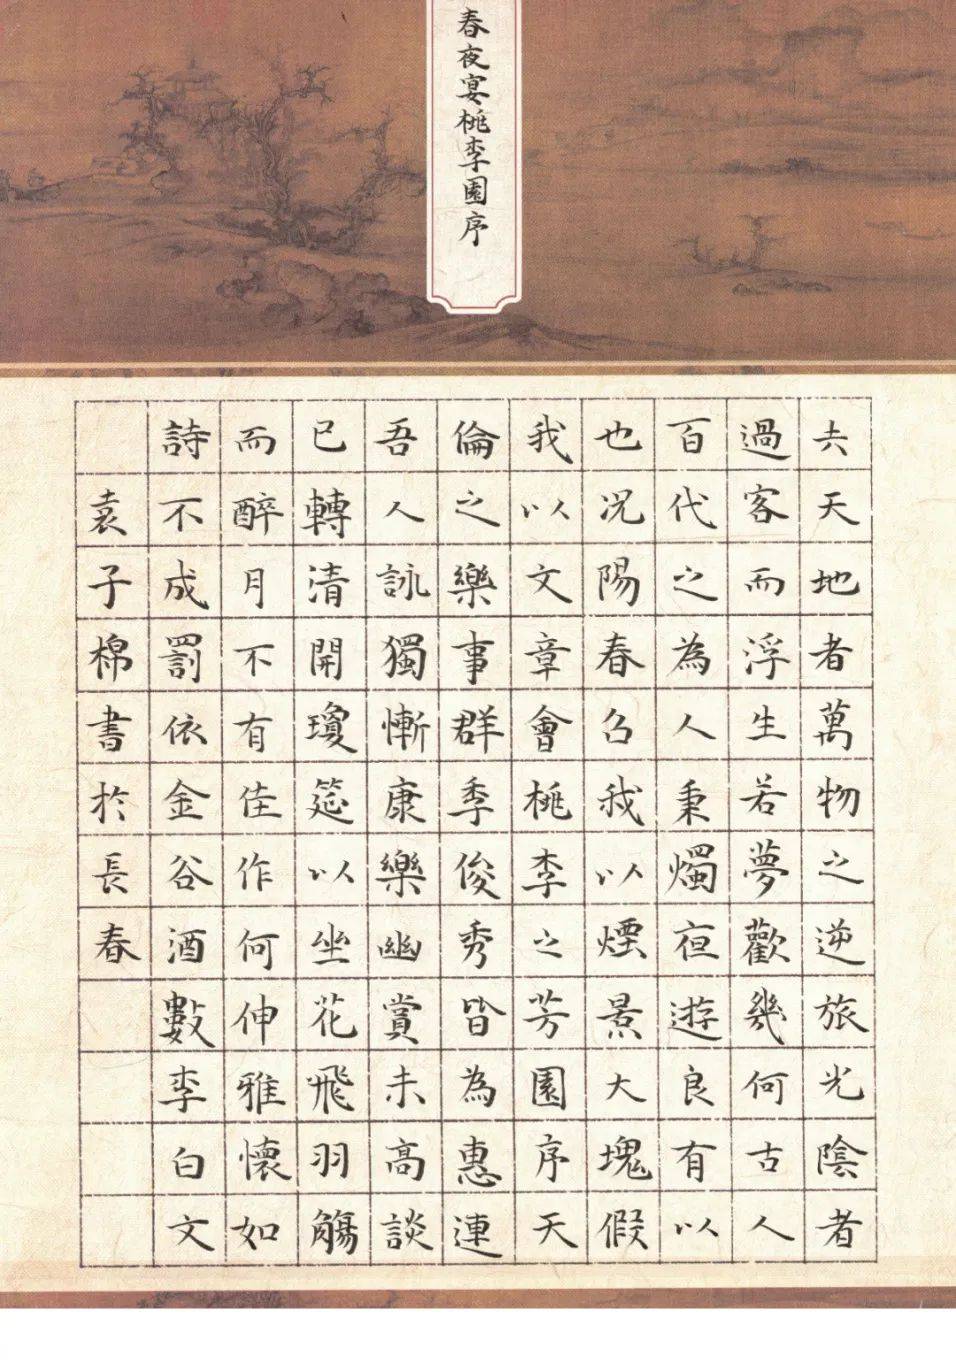 春夜宴桃李園序
夫天地者萬物之逆旅光陰者
過客而浮生若夢歡幾何古人
百代之為人秉燭夜遊良有以
也況陽春召我以煙景大塊假
我以文章會桃李之芳園序天
倫之樂事群季俊秀皆為惠連
吾人詠獨慚康樂幽賞未高談
已轉清開瓊筵以坐花飛羽觴
而醉月不有佳作何伸雅懷如
詩不成罰依金谷酒數李白文
袁子棉書於長春